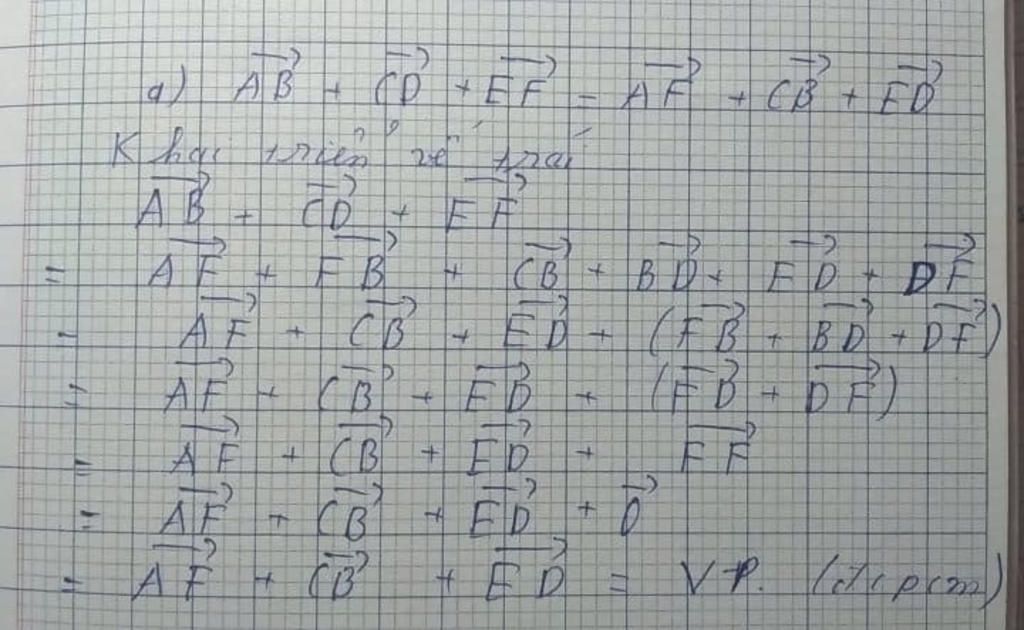 a) $\overrightarrow{AB} + \overrightarrow{CD} + \overrightarrow{EF} = \overrightarrow{AF} + \overrightarrow{CB} + \overrightarrow{ED}$
Khai triển vế trái
$\overrightarrow{AB} + \overrightarrow{CD} + \overrightarrow{EF}$
$= \overrightarrow{AF} + \overrightarrow{FB} + \overrightarrow{CB} + \overrightarrow{BD} + \overrightarrow{ED} + \overrightarrow{DF}$
$= \overrightarrow{AF} + \overrightarrow{CB} + \overrightarrow{ED} + (\overrightarrow{FB} + \overrightarrow{BD} + \overrightarrow{DF})$
$= \overrightarrow{AF} + \overrightarrow{CB} + \overrightarrow{ED} + (\overrightarrow{FD} + \overrightarrow{DF})$
$= \overrightarrow{AF} + \overrightarrow{CB} + \overrightarrow{ED} + \overrightarrow{FF}$
$= \overrightarrow{AF} + \overrightarrow{CB} + \overrightarrow{ED} + \overrightarrow{0}$
$= \overrightarrow{AF} + \overrightarrow{CB} + \overrightarrow{ED} = VP.$ (đcpcm)